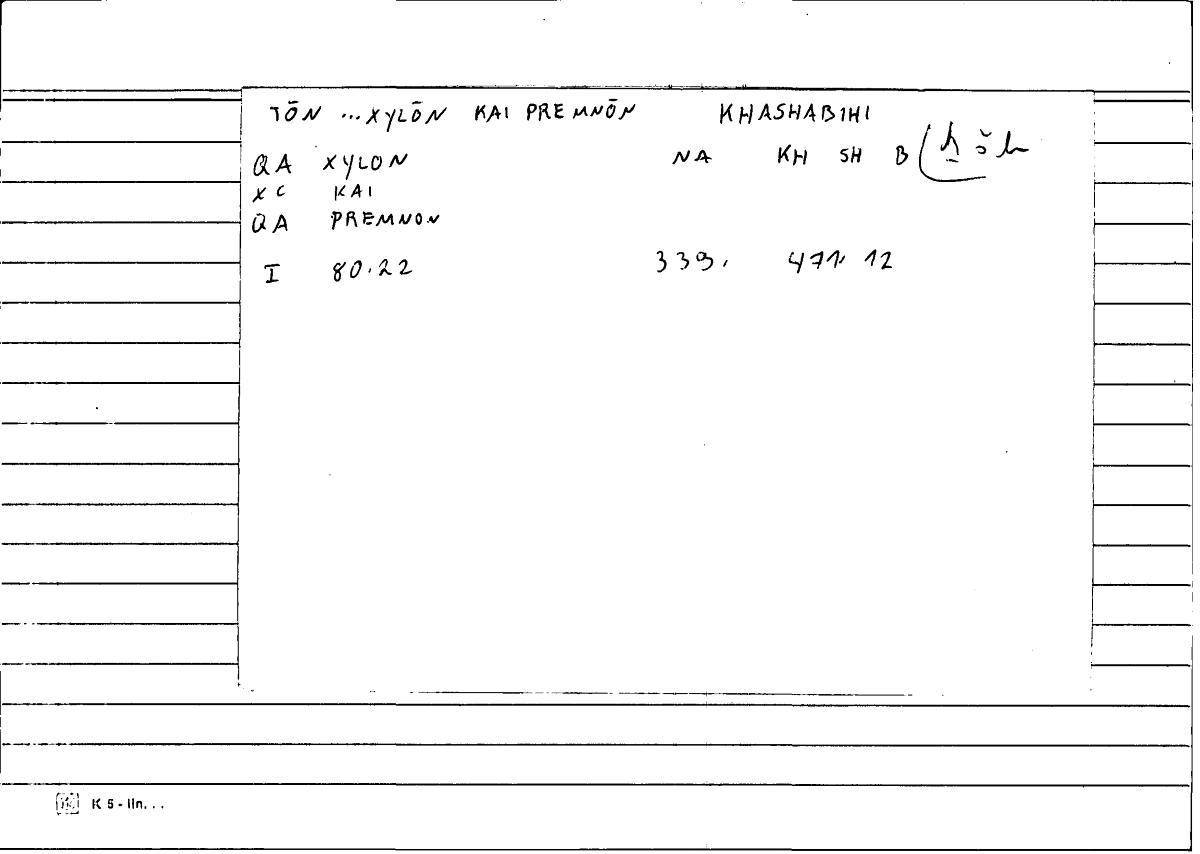 TŌN ...XYLŌN KAI PREMNŌN KHASHABIHI
QA XYLON NA KH SH B ( ẖšb
XC KAI
QA PREMNON
I 80.22 339, 471, 12
K 5 - lin. . .